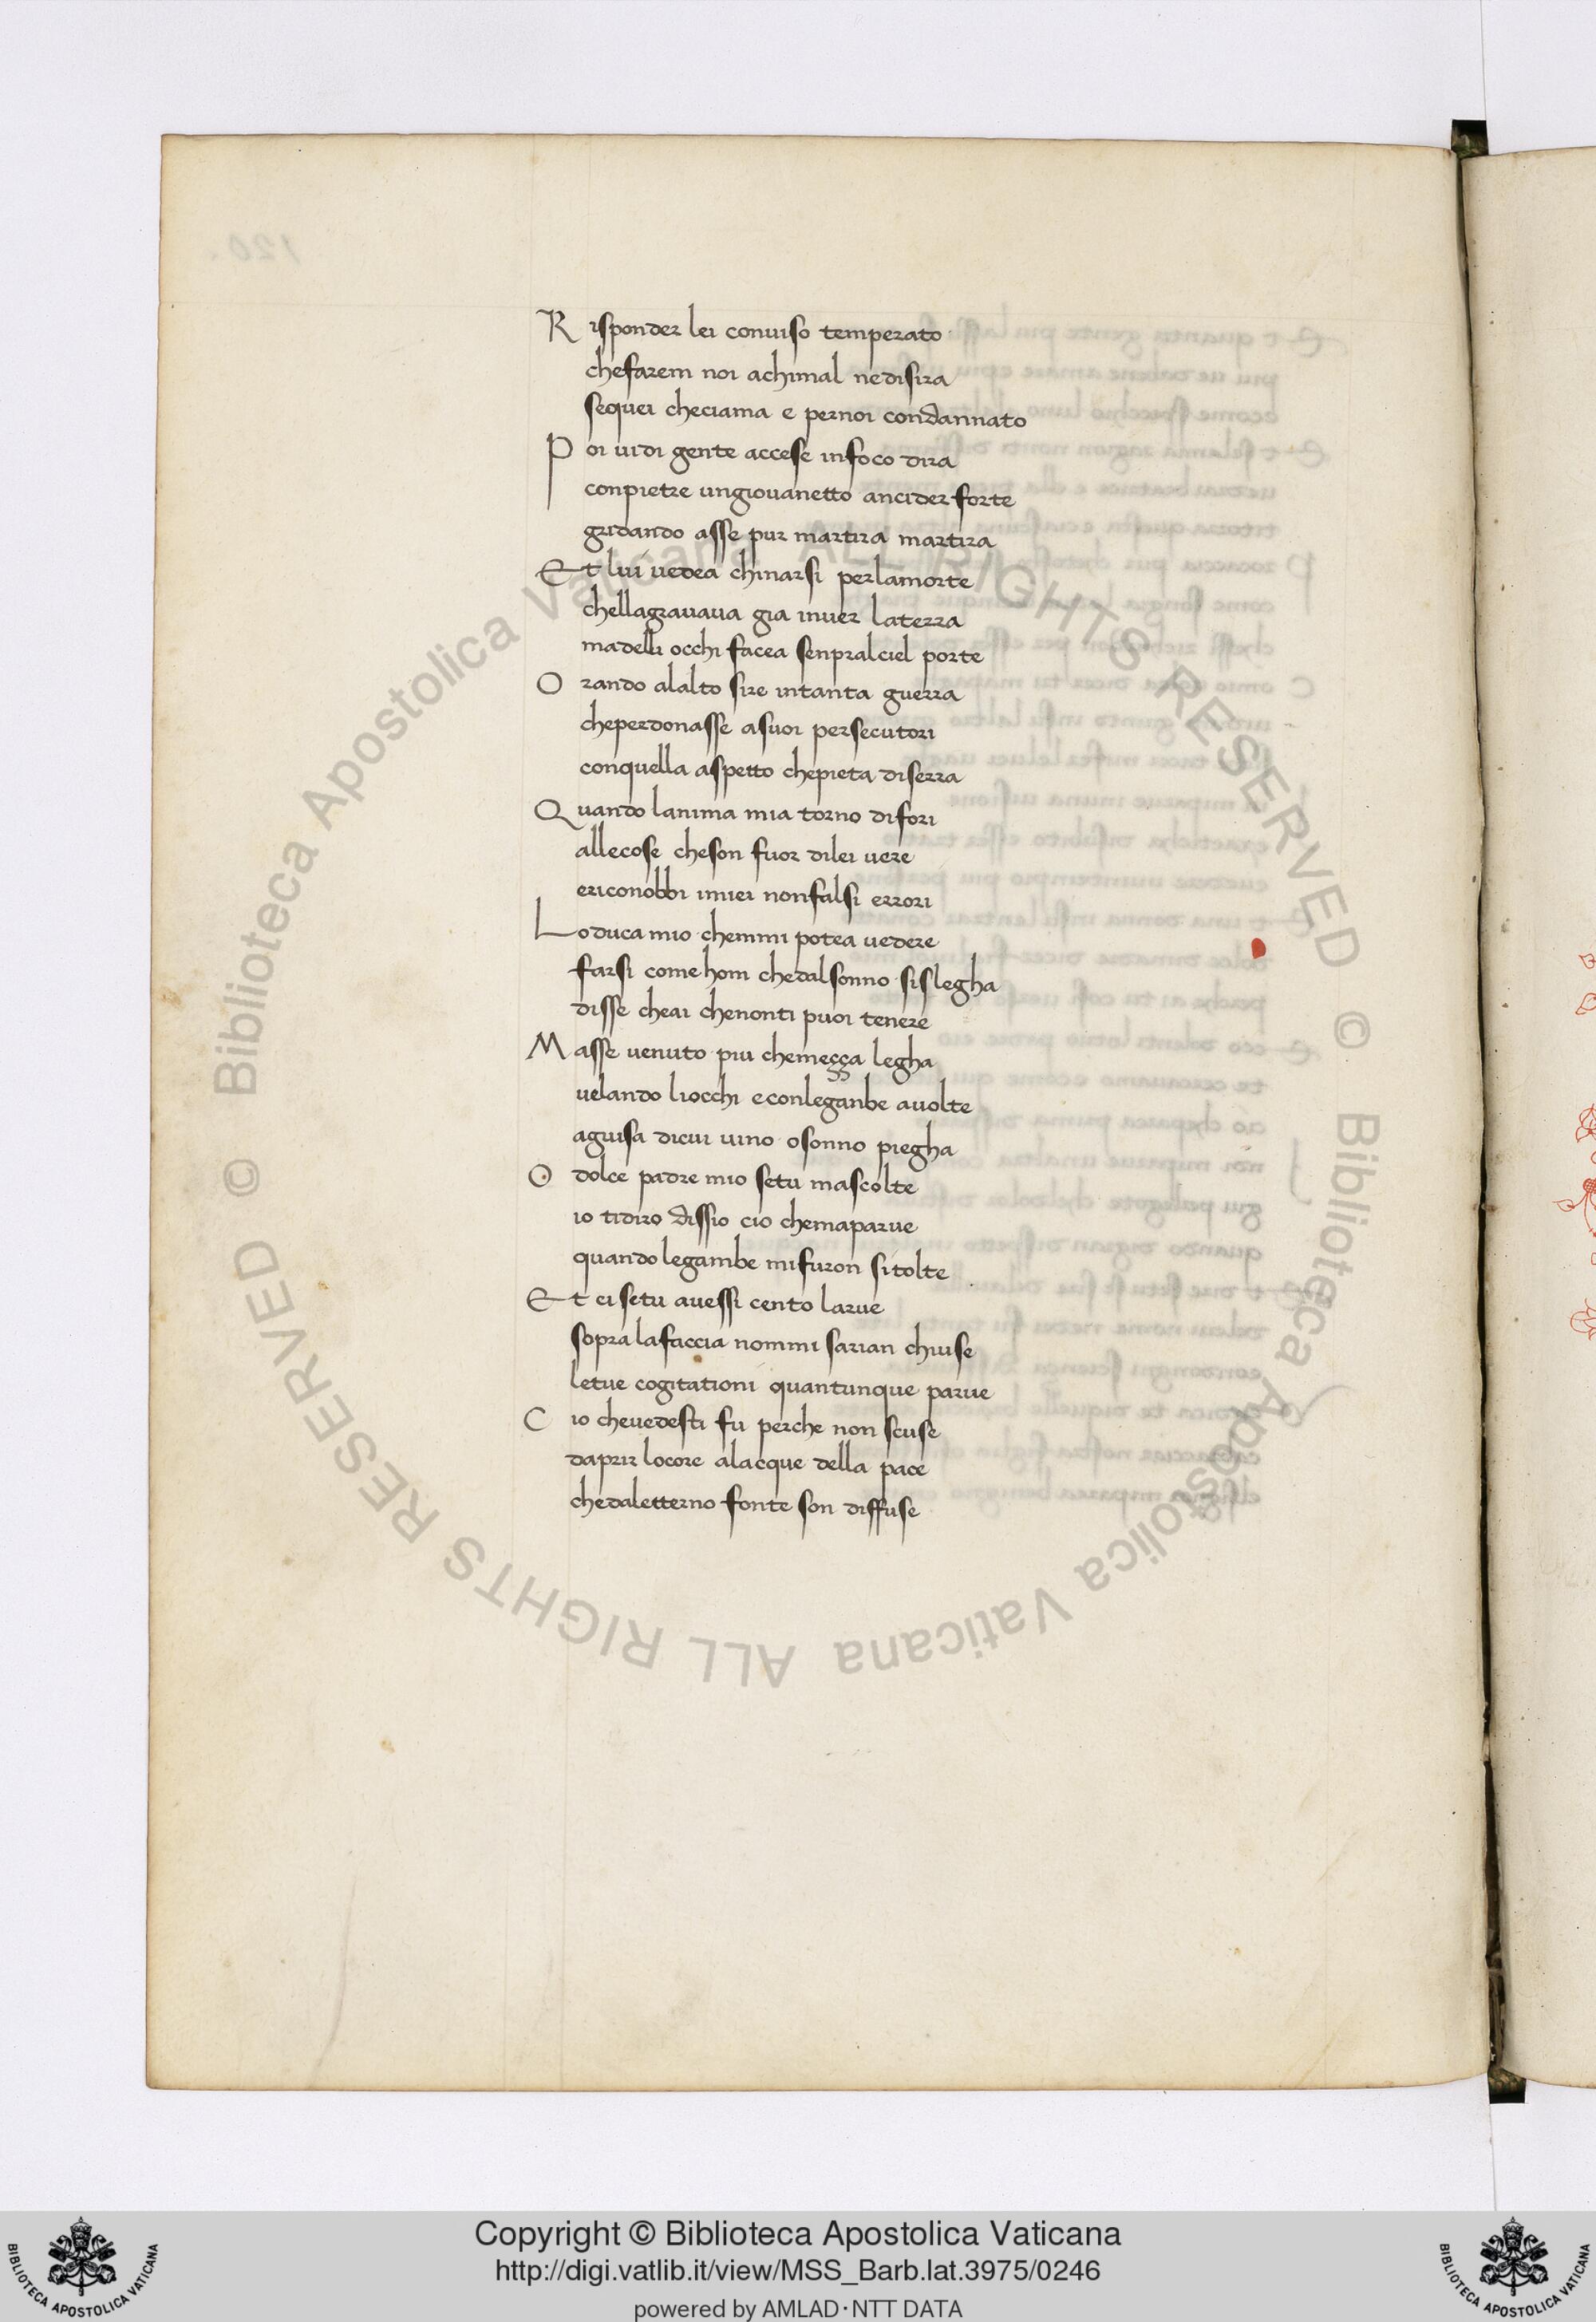 R isponder lei conuiso temperato
chefarem noi achimal nedisira
sequei checiama e pernoi condannato
P oi uidi gente accese infoco dira
conpietre ungiouanetto ancider forte
gridando asse pur martira martira
Et lui uedea chinarsi perlamorte
chellagrauaua gia inuer laterra
madelli occhi facea senpralciel porte
O rando alalto sire intanta guerra
cheperdonasse asuoi persecutori
conquella aspetto chepieta diserra
Q uando lanima mia torno difori
allecose cheson fuor dilei uere
ericonobbi imiei nonfalsi errori
Loduca mio chemmi potea uedere
farsi come hom chedalsonno sislegha
disse cheai chenonti puoi tenere
M asse uenuto piu chemeçça legha
uelando liocchi econleganbe auolte
aguisa dicui uino osonno piegha
O dolce padre mio setu mascolte
io tidiro dissio cio chemaparue
quando legambe mifuron sitolte
Et ci setu auessi cento larue
sopra lafaccia nommi sarian chiuse
letue cogitationi quantunque parue
C io cheuedesti fu perche non scuse
daprir locore alacque della pace
chedaletterno fonte son diffuse
© Biblioteca Apostolica Vaticana ALL RIGHTS RESERVED
© Biblioteca Apostolica Vaticana ALL RIGHTS RESERVED
Copyright © Biblioteca Apostolica Vaticana
http://digi.vatlib.it/view/MSS_Barb.lat.3975/0246
powered by AMLAD·NTT DATA
BIBLIOTECA APOSTOLICA VATICANA
BIBLIOTECA APOSTOLICA VATICANA